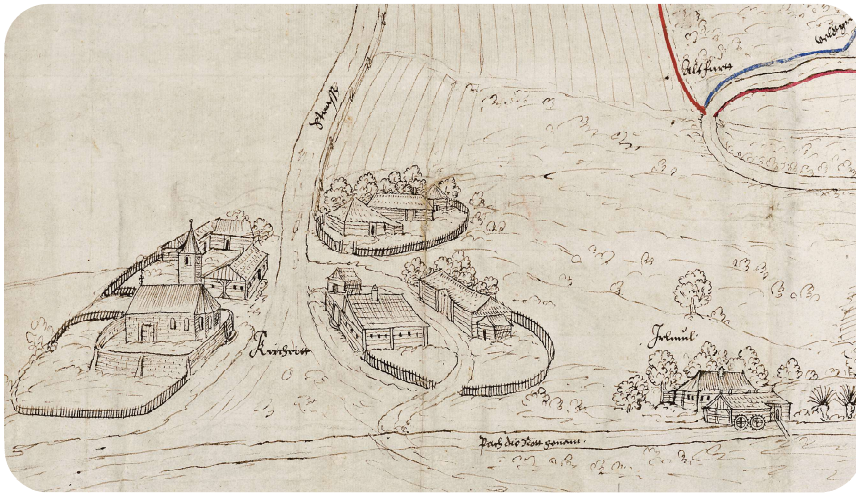 Altfurtt
Strass
Kirchrott
Irlmül
Pach die Rott genant.